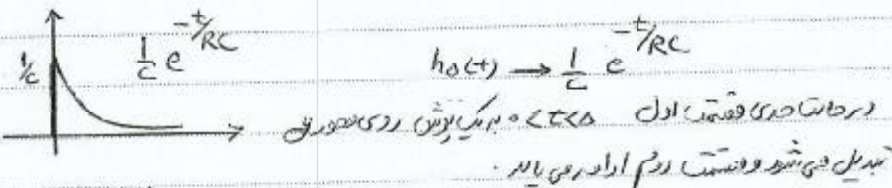 1/c
1/c e^{-t/RC}
h_Δ(t) → 1/c e^{-t/RC}
در حالت حدی قسمت اول 0<t<Δ به یک پرش روی محور
تبدیل می شود و قسمت دوم ادامه می یابد.